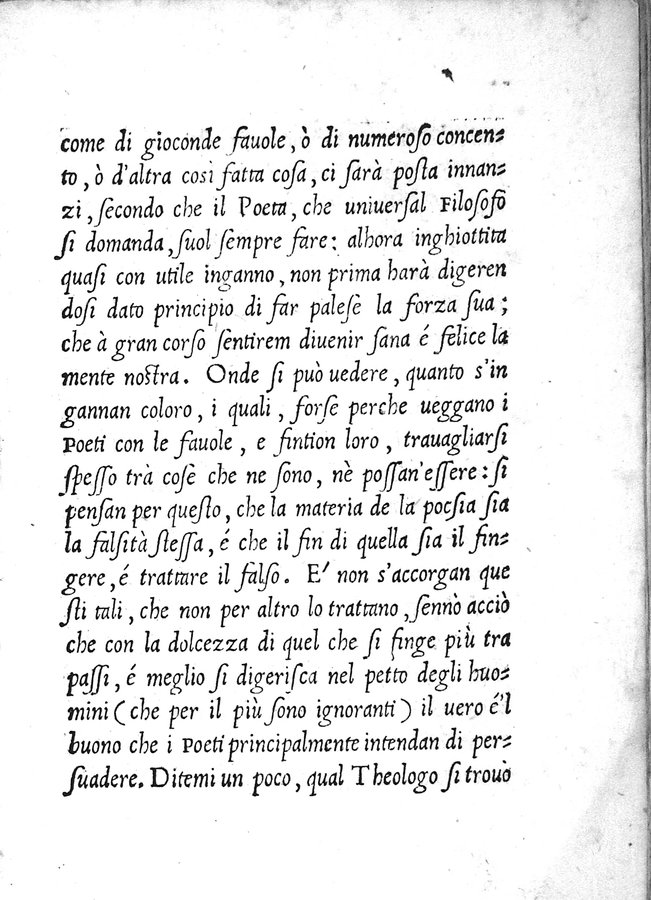 come di gioconde fauole, ò di numeroſo concen⸗
to, ò d'altra così fatta coſa, ci ſarà poſta innan⸗
zi, ſecondo che il Poeta, che uniuerſal Filoſofo
ſi domanda, ſuol ſempre fare: alhora inghiottita
quaſi con utile inganno, non prima harà digeren
doſi dato principio di far paleſe la forza ſua;
che à gran corſo ſentirem diuenir ſana é felice la
mente noſtra. Onde ſi può uedere, quanto s'in
gannan coloro, i quali, forſe perche ueggano i
Poeti con le fauole, e fintion loro, trauagliarſi
ſpeſſo trà coſe che ne ſono, nè poſſan'eſſere: ſi
penſan per queſto, che la materia de la poeſia ſia
la falſità ſteſſa, é che il fin di quella ſia il fin⸗
gere, é trattare il falſo. E' non s'accorgan que
ſti tali, che non per altro lo trattano, ſennò acciò
che con la dolcezza di quel che ſi finge più tra
paſſi, é meglio ſi digeriſca nel petto degli huo⸗
mini (che per il più ſono ignoranti) il uero é'l
buono che i Poeti principalmente intendan di per⸗
ſuadere. Ditemi un poco, qual Theologo ſi trouò